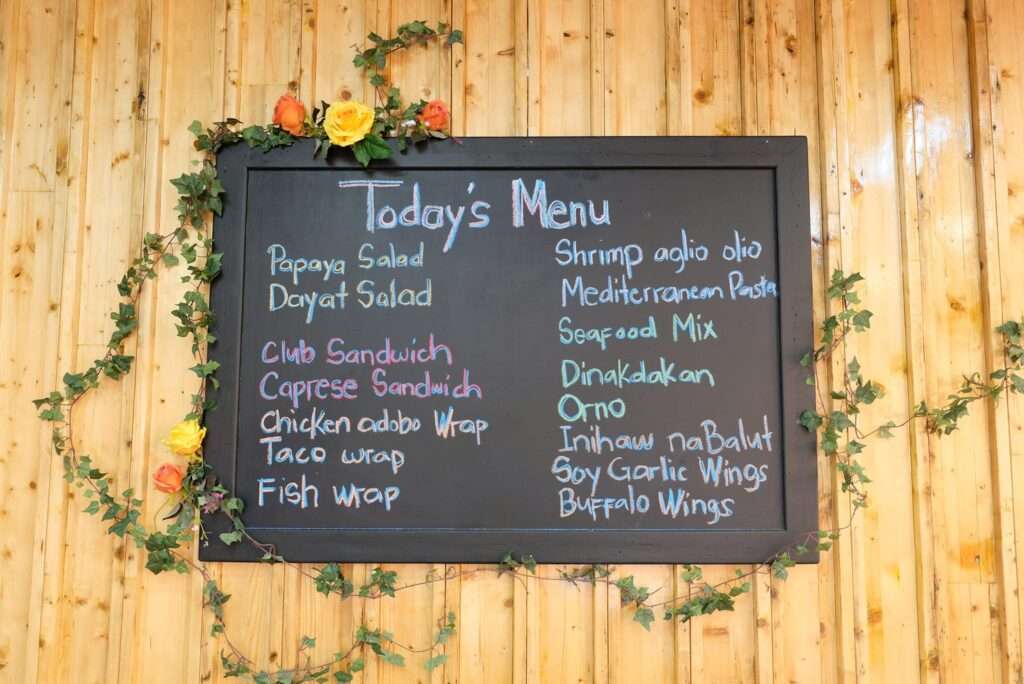 Today's Menu
Papaya Salad
Dayat Salad
Club Sandwich
Caprese Sandwich
Chicken adobo Wrap
Taco wrap
Fish wrap
Shrimp aglio olio
Mediterranean Pasta
Seafood Mix
Dinakdakan
Orno
Inihaw na Balut
Soy Garlic Wings
Buffalo Wings